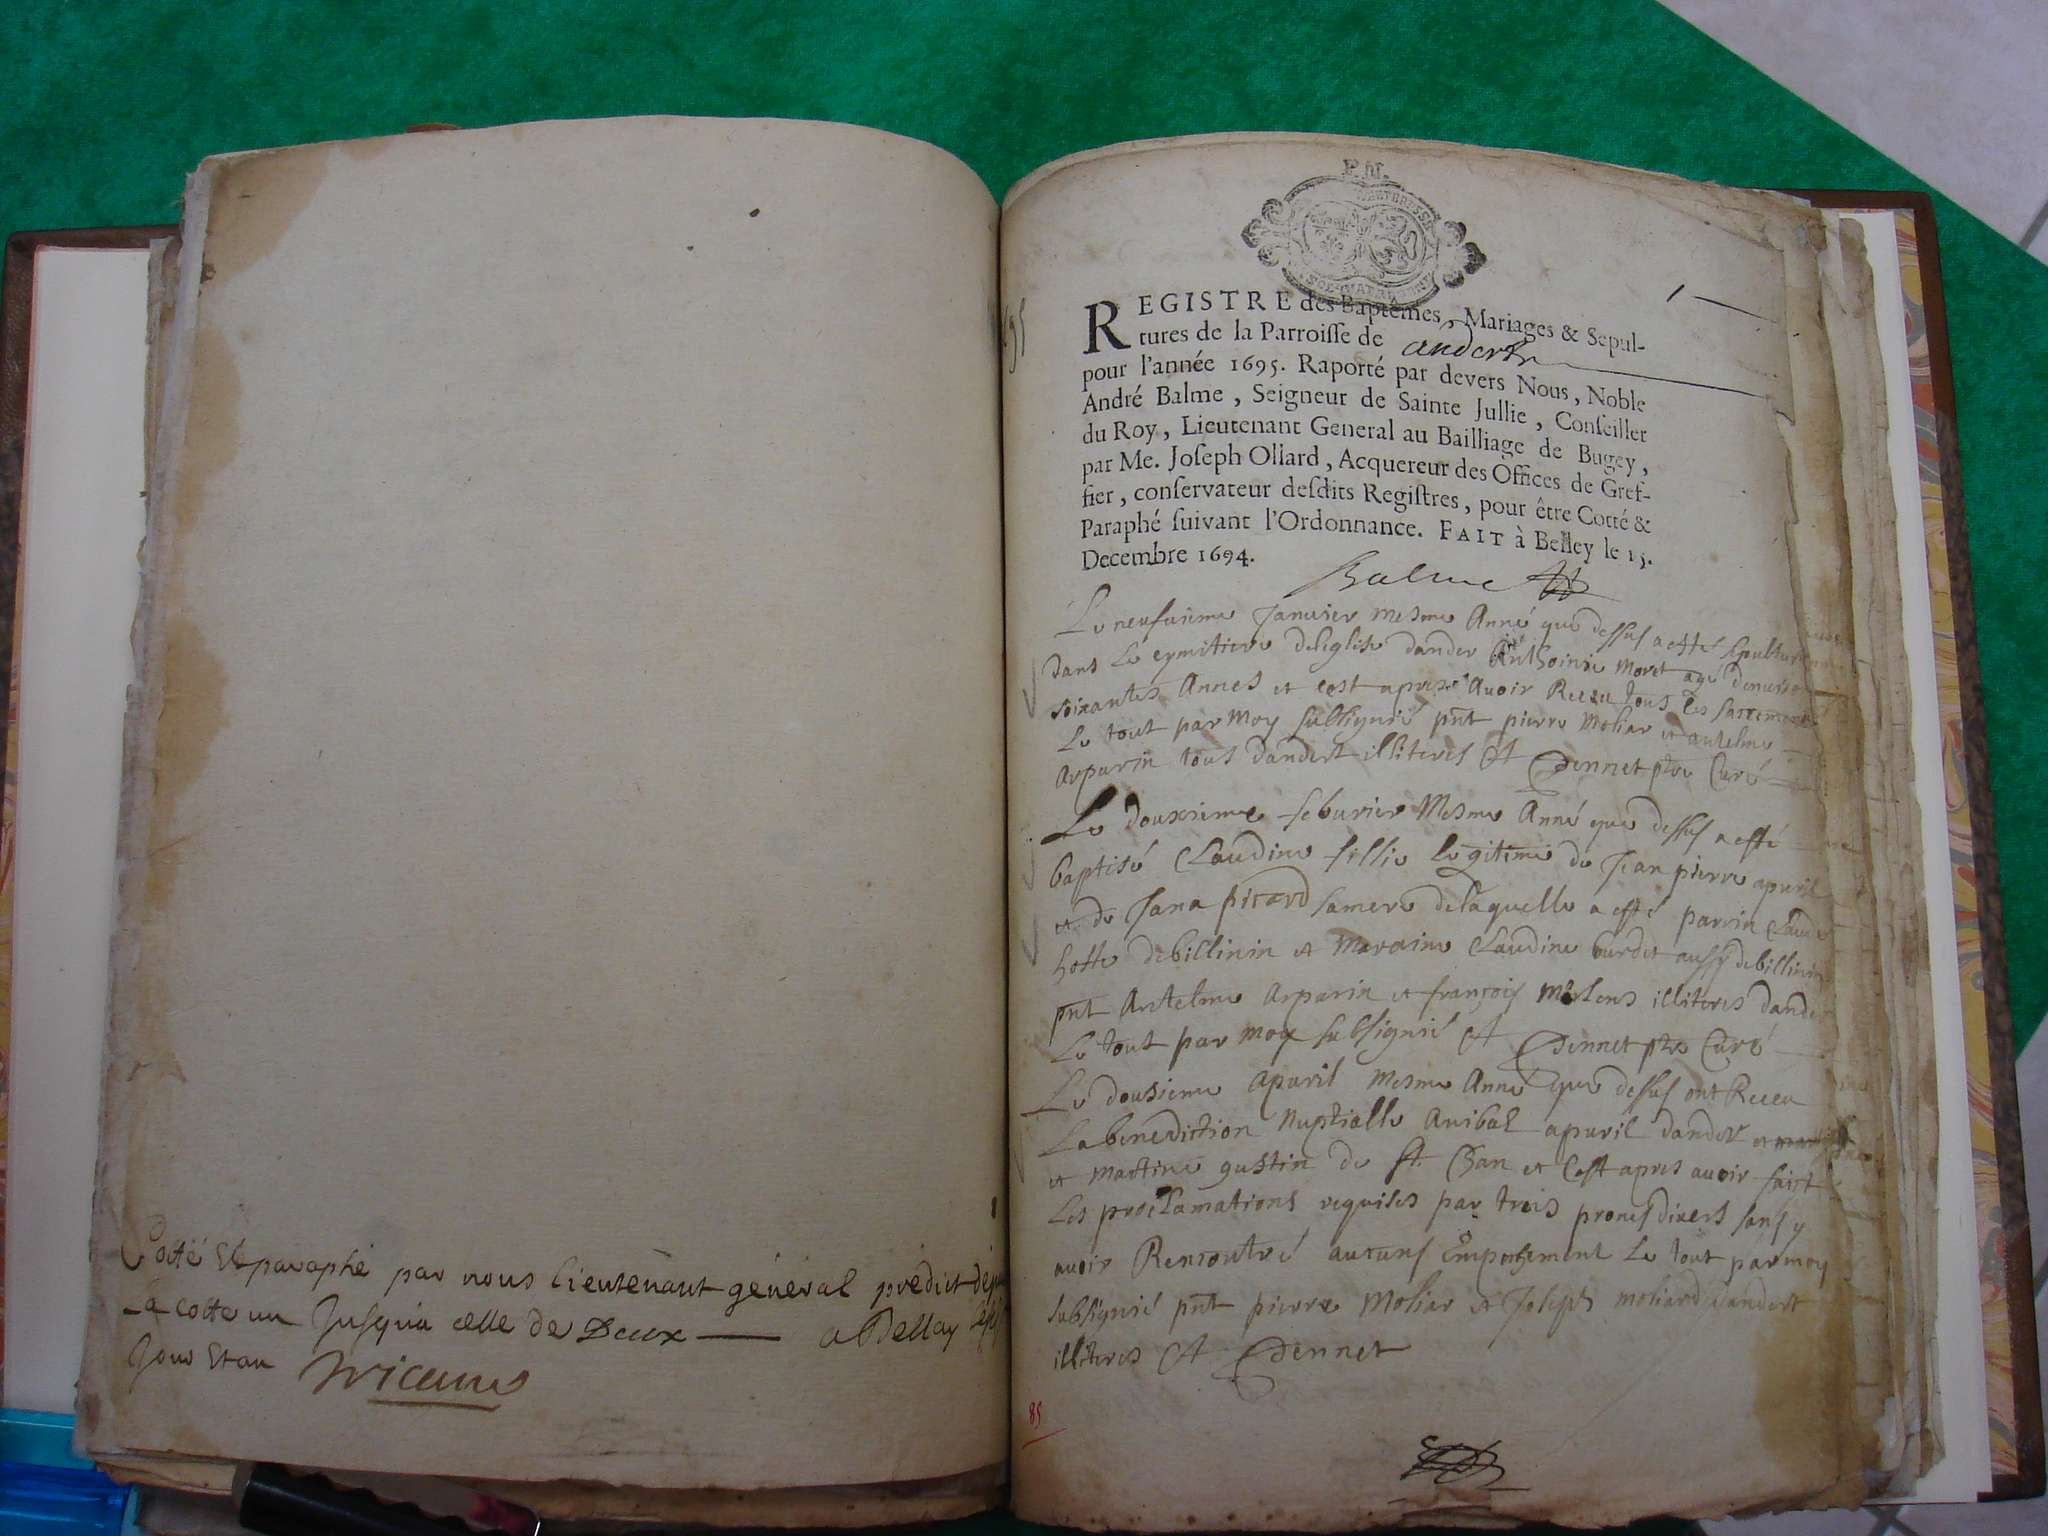 Cotté Et paraphé par nous Lieutenant général prédict
La cotte un Jusqua celle de Deux a Bellay
Jour Et an
1695
P. M.
REGISTRE des Baptêmes, Mariages & Sepul-
tures de la Parroisse de andert
pour l'année 1695. Raporté par devers Nous, Noble
André Balme, Seigneur de Sainte Jullie, Conseiller
du Roy, Lieutenant General au Bailliage de Bugey,
par Me. Joseph Ollard, Acquereur des Offices de Gref-
fier, conservateur desdits Registres, pour être Cotté &
Paraphé suivant l'Ordonnance. FAIT à Belley le 15.
Decembre 1694.
Balme
Le neufvieme Janvier mesme Anné que dessus a esté sepulturé
dans Le cymitiere deleglise dander Anthoinie Moret agé denviro
soixantes Annes et cest apres Avoir Receu tous les sacrements
Le tout par moy subsignié pnt pierre Moliar et antelme
Arparin tous dandert illiteres Et Dennet ptre Curé
Le douxsieme feburier Mesme Anné que dessus a esté
baptisé Claudine fillie legitime de Jean pierre apuril
et de Jana picard sa mere de laquelle a esté parrin Claude
hotte debillinin et maraine Claudine burdet aussy debillinin
pnt Antelme Arparin et françois illiteres dander
Le tout par moy subsignié Et Dennet ptre Curé
Le dousieme apuril mesme Anné que dessus ont Receu
La benediction Nuptialle Anibal apuril dander et
et Martine gustin de St. Ban et Cest apres avoir faict
Les proclamations requises par trois prones divers sans y
avoir Rencontré aucuns Empeschement Le tout par moy
subsignié pnt pierre Moliar et Joseph moliard dandert
illiteres Et Dennet
85